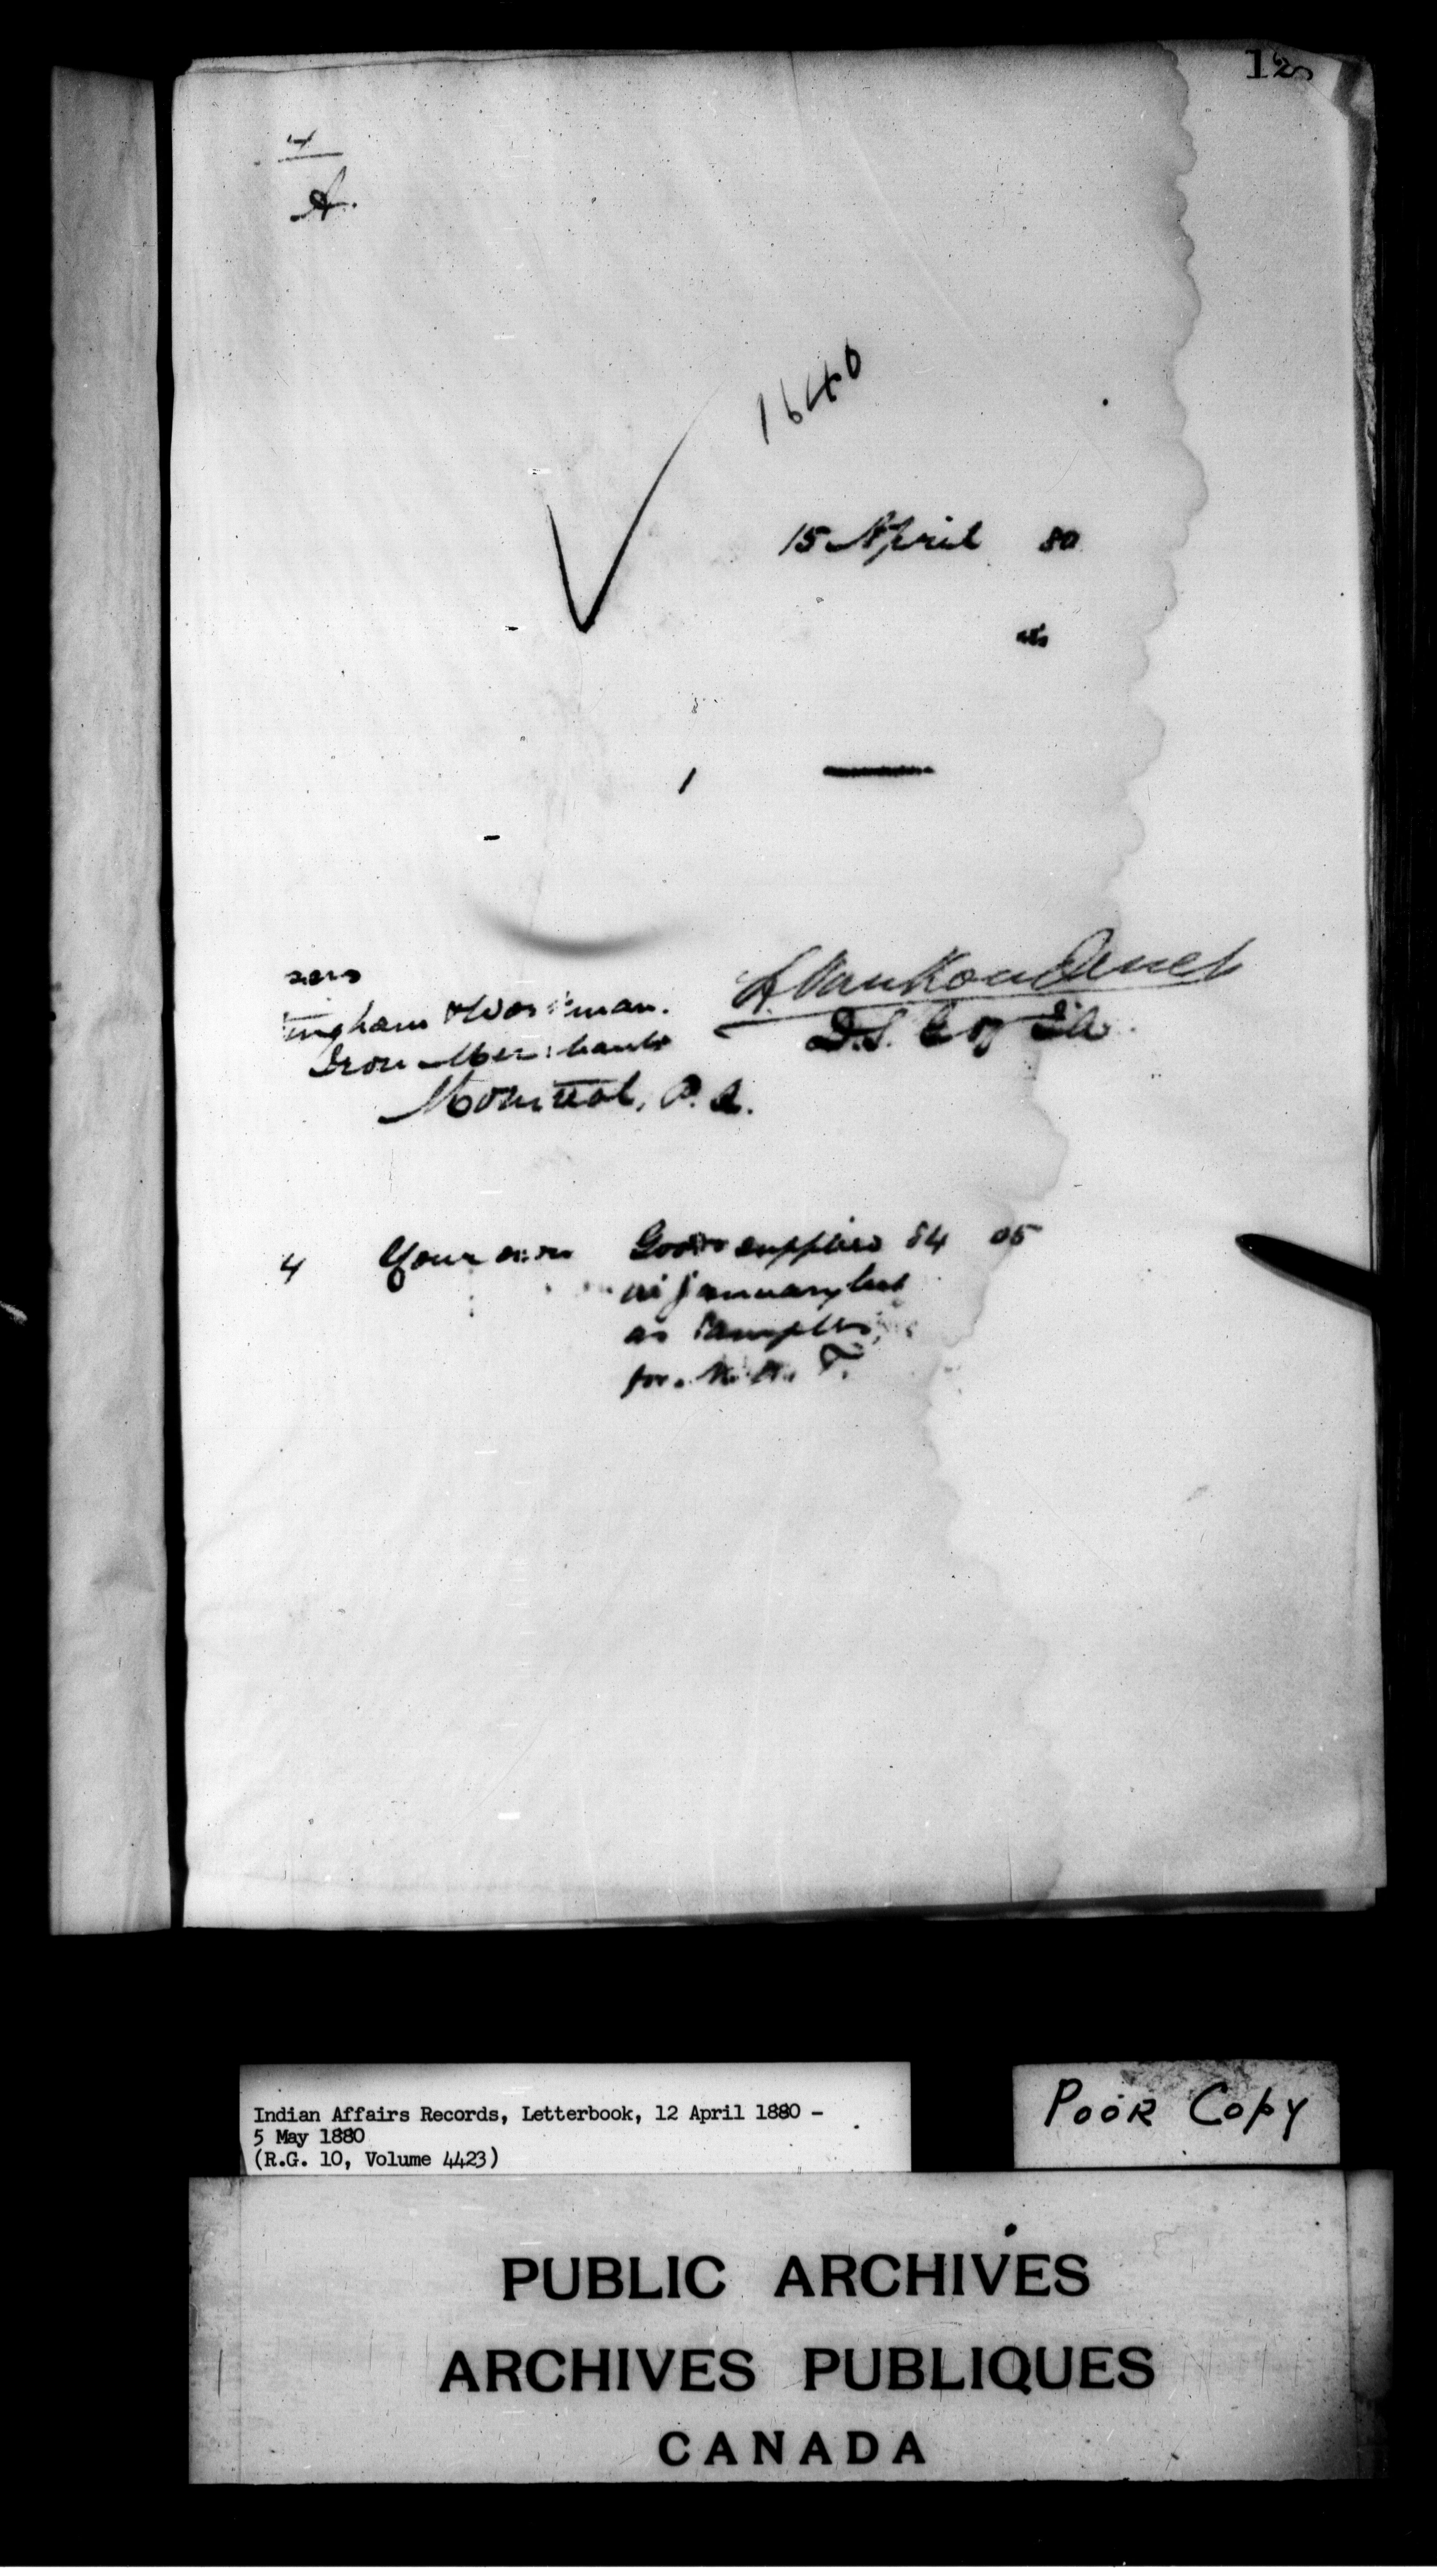 4
A.
1640
15 April 80
1
L. VanKoughnet
D.S. G of I.A.
tingham & Workman.
Iron Merchants
Montreal, P.Q.
4 Your own Goods supplied 84 05
in January last
as samples
for N.W.T.
Indian Affairs Records, Letterbook, 12 April 1880 -
5 May 1880
(R.G. 10, Volume 4423)
Poor Copy
PUBLIC ARCHIVES
ARCHIVES PUBLIQUES
CANADA